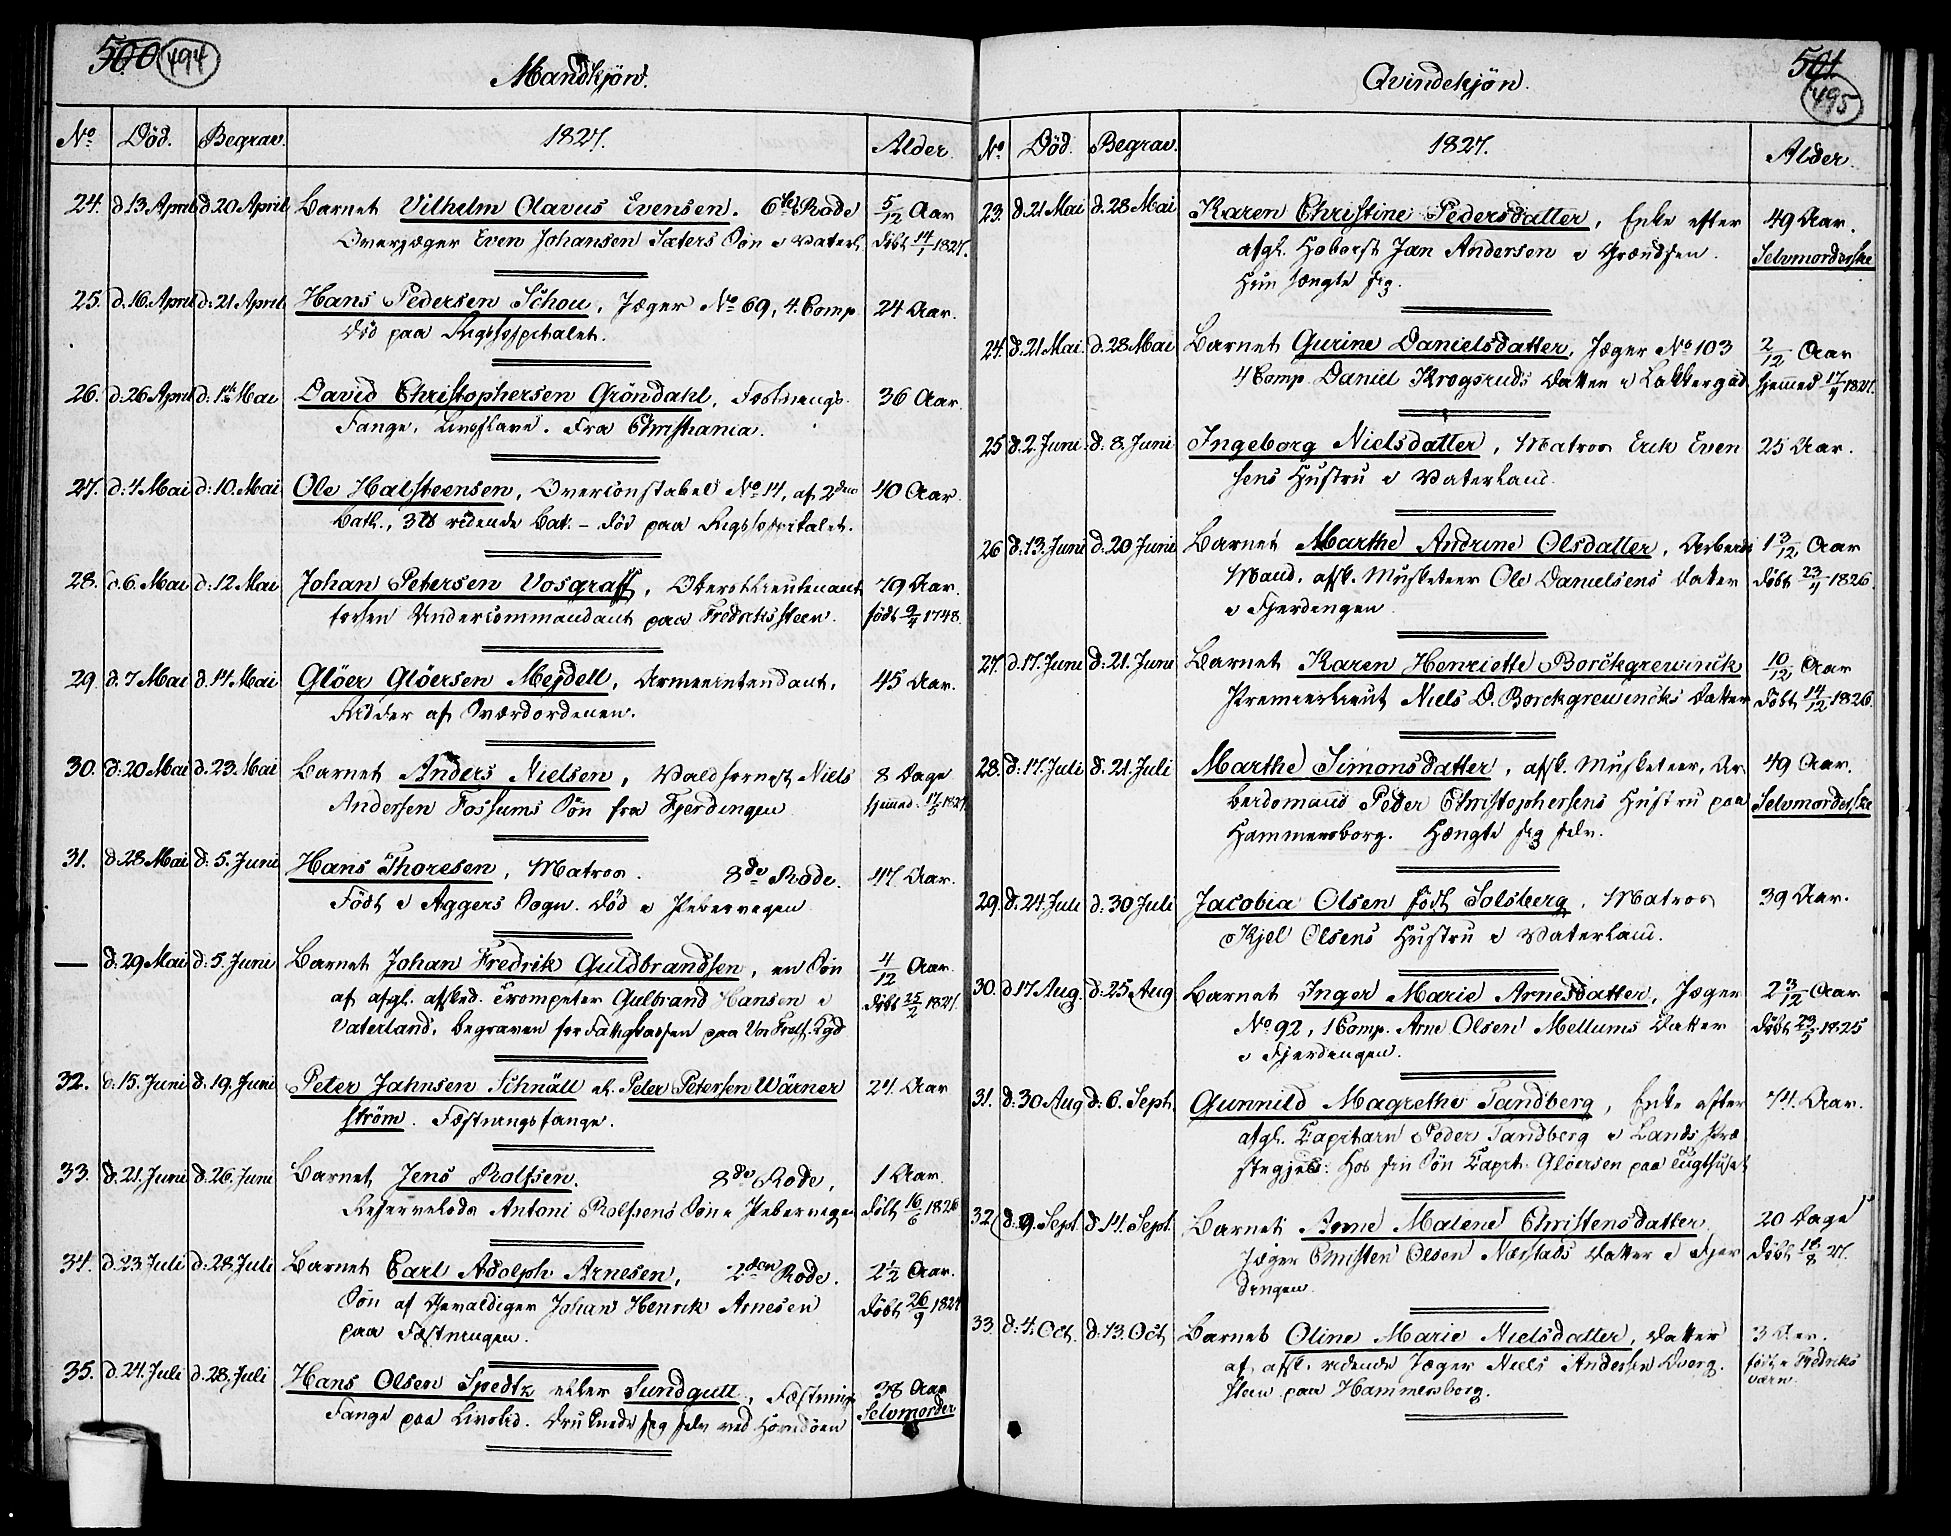 500 494
Mandkjön.
No. Död. Begrav. 1827. Alder.
24. d 13 April d 20 April Barnet Vilhelm Olavus Evensen. 6te Rode 5/12 Aar
Overjæger Even Johansen Sæters Søn i Vaterl. döbt 14/1 1827.
25. d. 16. April d. 21 April Hans Pedersen Schou, Jæger No 69, 4. Comp. 24 Aar.
död paa Rigshospitalet.
26. d. 26 April d. 1te Mai David Christophersen Gröndahl, Fæstnings 36 Aar.
Fange, Livsslave. Fra Christiania.
27. d. 4. Mai d. 10. Mai Ole Halsteensen, Overconstabel No 14, af 2den 40 Aar.
Batl., 3die ridende Bat. – död paa Rigshospitalet.
28. d. 6. Mai d. 12. Mai Johan Petersen Vosgraff, Oberstlieutenant 79 Aar.
forhen Undercommandant paa Fredrikssteen. födt 9/4 1748.
29. d. 7 Mai d. 14. Mai Glöer Glöersen Mejdell, Armeeintendant, 45 Aar.
Ridder af Sværdordenen.
30. d. 20 Mai d. 23. Mai Barnet Anders Nielsen, Waldhornist Niels 8 Dage
Andersen Fossums Sön fra Fjerdingen hjemmed. 17/5 1827.
31. d. 28 Mai d. 5. Juni Hans Thoresen, Matros. 8de Rode. 47 Aar.
Födt i Aggers Sogn. död i Pebervigen
— d. 29 Mai d. 5. Juni Barnet Johan Fredrik Guldbrandsen, en Sön 4/12 Aar.
af afgl. afsked. Trompeter Gulbrand Hansen i döbt 25/2 1827.
Vaterland, begraven for Fattigkassen paa Vor Frels. Kgd
32. d. 15. Juni d. 19. Juni Peter Jahnsen Schnäll el. Peter Petersen Wärner 24 Aar
ström. Fæstningsfange.
33. d. 21. Juni d. 26. Juni Barnet Jens Rolfsen. 8de Rode, 1 Aar.
Reservelods Antoni Rolfsens Sön i Pebervigen döbt 16/6 1826
34. d. 23 Juli d. 28. Juli Barnet Carl Adolph Arnesen, 2den Rode. 2 1/2 Aar.
Sön af Gevaldiger Johan Henrik Arnesen döbt 26/9 1824
paa Fæstningen.
35. d. 24. Juli d. 28. Juli Hans Olsen Spedtz eller Sundgutt, Fæstnings 38 Aar
Fange paa Livstid. Druknede sig selv ved Hovedöen Selvmorder
501 495
Qvindekjön.
No. Död. Begrav. 1827. Alder.
23. d. 21 Mai d. 28 Mai Karen Christine Pedersdatter, Enke efter 49 Aar.
afgl. Hoboist Jan Andersen i Grændsen. Selvmorderske
Hun hængte sig.
24. d. 21 Mai. d. 28 Mai Barnet Gurine Danielsdatter, Jæger No 103 2/12 Aar
4 Comp. Daniel Krogsruds Datter i Lakkergad. hjemmed 17/4 1827.
25 d. 2. Juni d. 8. Juni Ingeborg Nielsdatter, Matros Erik Even 25 Aar.
sens Hustru i Vaterland.
26 d. 13. Juni d. 20 Juni Barnet Marthe Andrine Olsdatter, Arbeids 1 3/12 Aar
Mand, afsk. Musketeer Ole Danielsens Datter döbt 23/4 1826.
i Fjerdingen
27. d. 17. Juni d. 21. Juni Barnet Karen Henriette Borckgrewinck 10/12 Aar
Premierlieut Niels D. Borckgrewincks Datter döbt 14/12 1826.
28. d. 17. Juli d. 21. Juli Marthe Simonsdatter, afsk. Musketeer, Ar 49 Aar.
beidsmand Peder Christophersens Hustru paa Selvmorderske
Hammersborg. Hængte sig selv.
29. d. 24. Juli d. 30 Juli Jacobia Olsen födt Solsberg, Matros 39 Aar.
Kjel Olsens Hustru i Vaterland.
30. d 17 Aug. d. 25 Aug Barnet Inger Marie Arnesdatter, Jæger 2 3/12 Aar
No. 92, 1 Comp. Arne Olsen Mellums Datter döbt 23/5 1825
i Fjerdingen.
31. d. 30 Aug d. 6. Sept. Gunnild Magrethe Tandberg, Enke efter 74. Aar.
afgl. Capitain Peder Tandberg i Lands Præ
stegjeld: Hos sin Sön Capit. Glöersen paa Tugthuset
32. d. 9. Sept. d. 14. Sept. Barnet Anne Malene Christensdatter 20 Dage
Jæger Christen Olsen Næstads Datter i Fjer döbt 18/8 27.
dingen.
33 d. 4. Oct. d. 13. Oct Barnet Oline Marie Nielsdatter, Datter 3 Aar.
af afsk. ridende Jæger Niels Andersen födt i Fredriks
paa Hammersborg. værn.